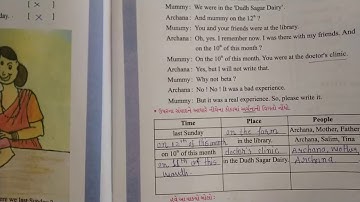 [ x ]
day. [ x ]
Mummy: We were in the 'Dudh Sagar Dairy'.
Archana: And mummy on the 12th ?
Mummy: You and your friends were at the library.
Archana: Oh, yes. I remember now. I was there with my friends. And
on the 10th of this month ?
Mummy: On the 10th of this month, You were at the doctor's clinic.
Archana: Yes, but I will not write that.
Mummy: Why not beta ?
Archana: No ! No ! It was a bad experience.
Mummy: But it was a real experience. So, please write it.
Time Place People
last Sunday on the farm Archana, Mother, Father
on 12th of this month in the library. Archana, Salim, Tina
on 10th of this month doctor's clinic Archana, mother
on 11th of this month in the Dudh Sagar Dairy. Archana